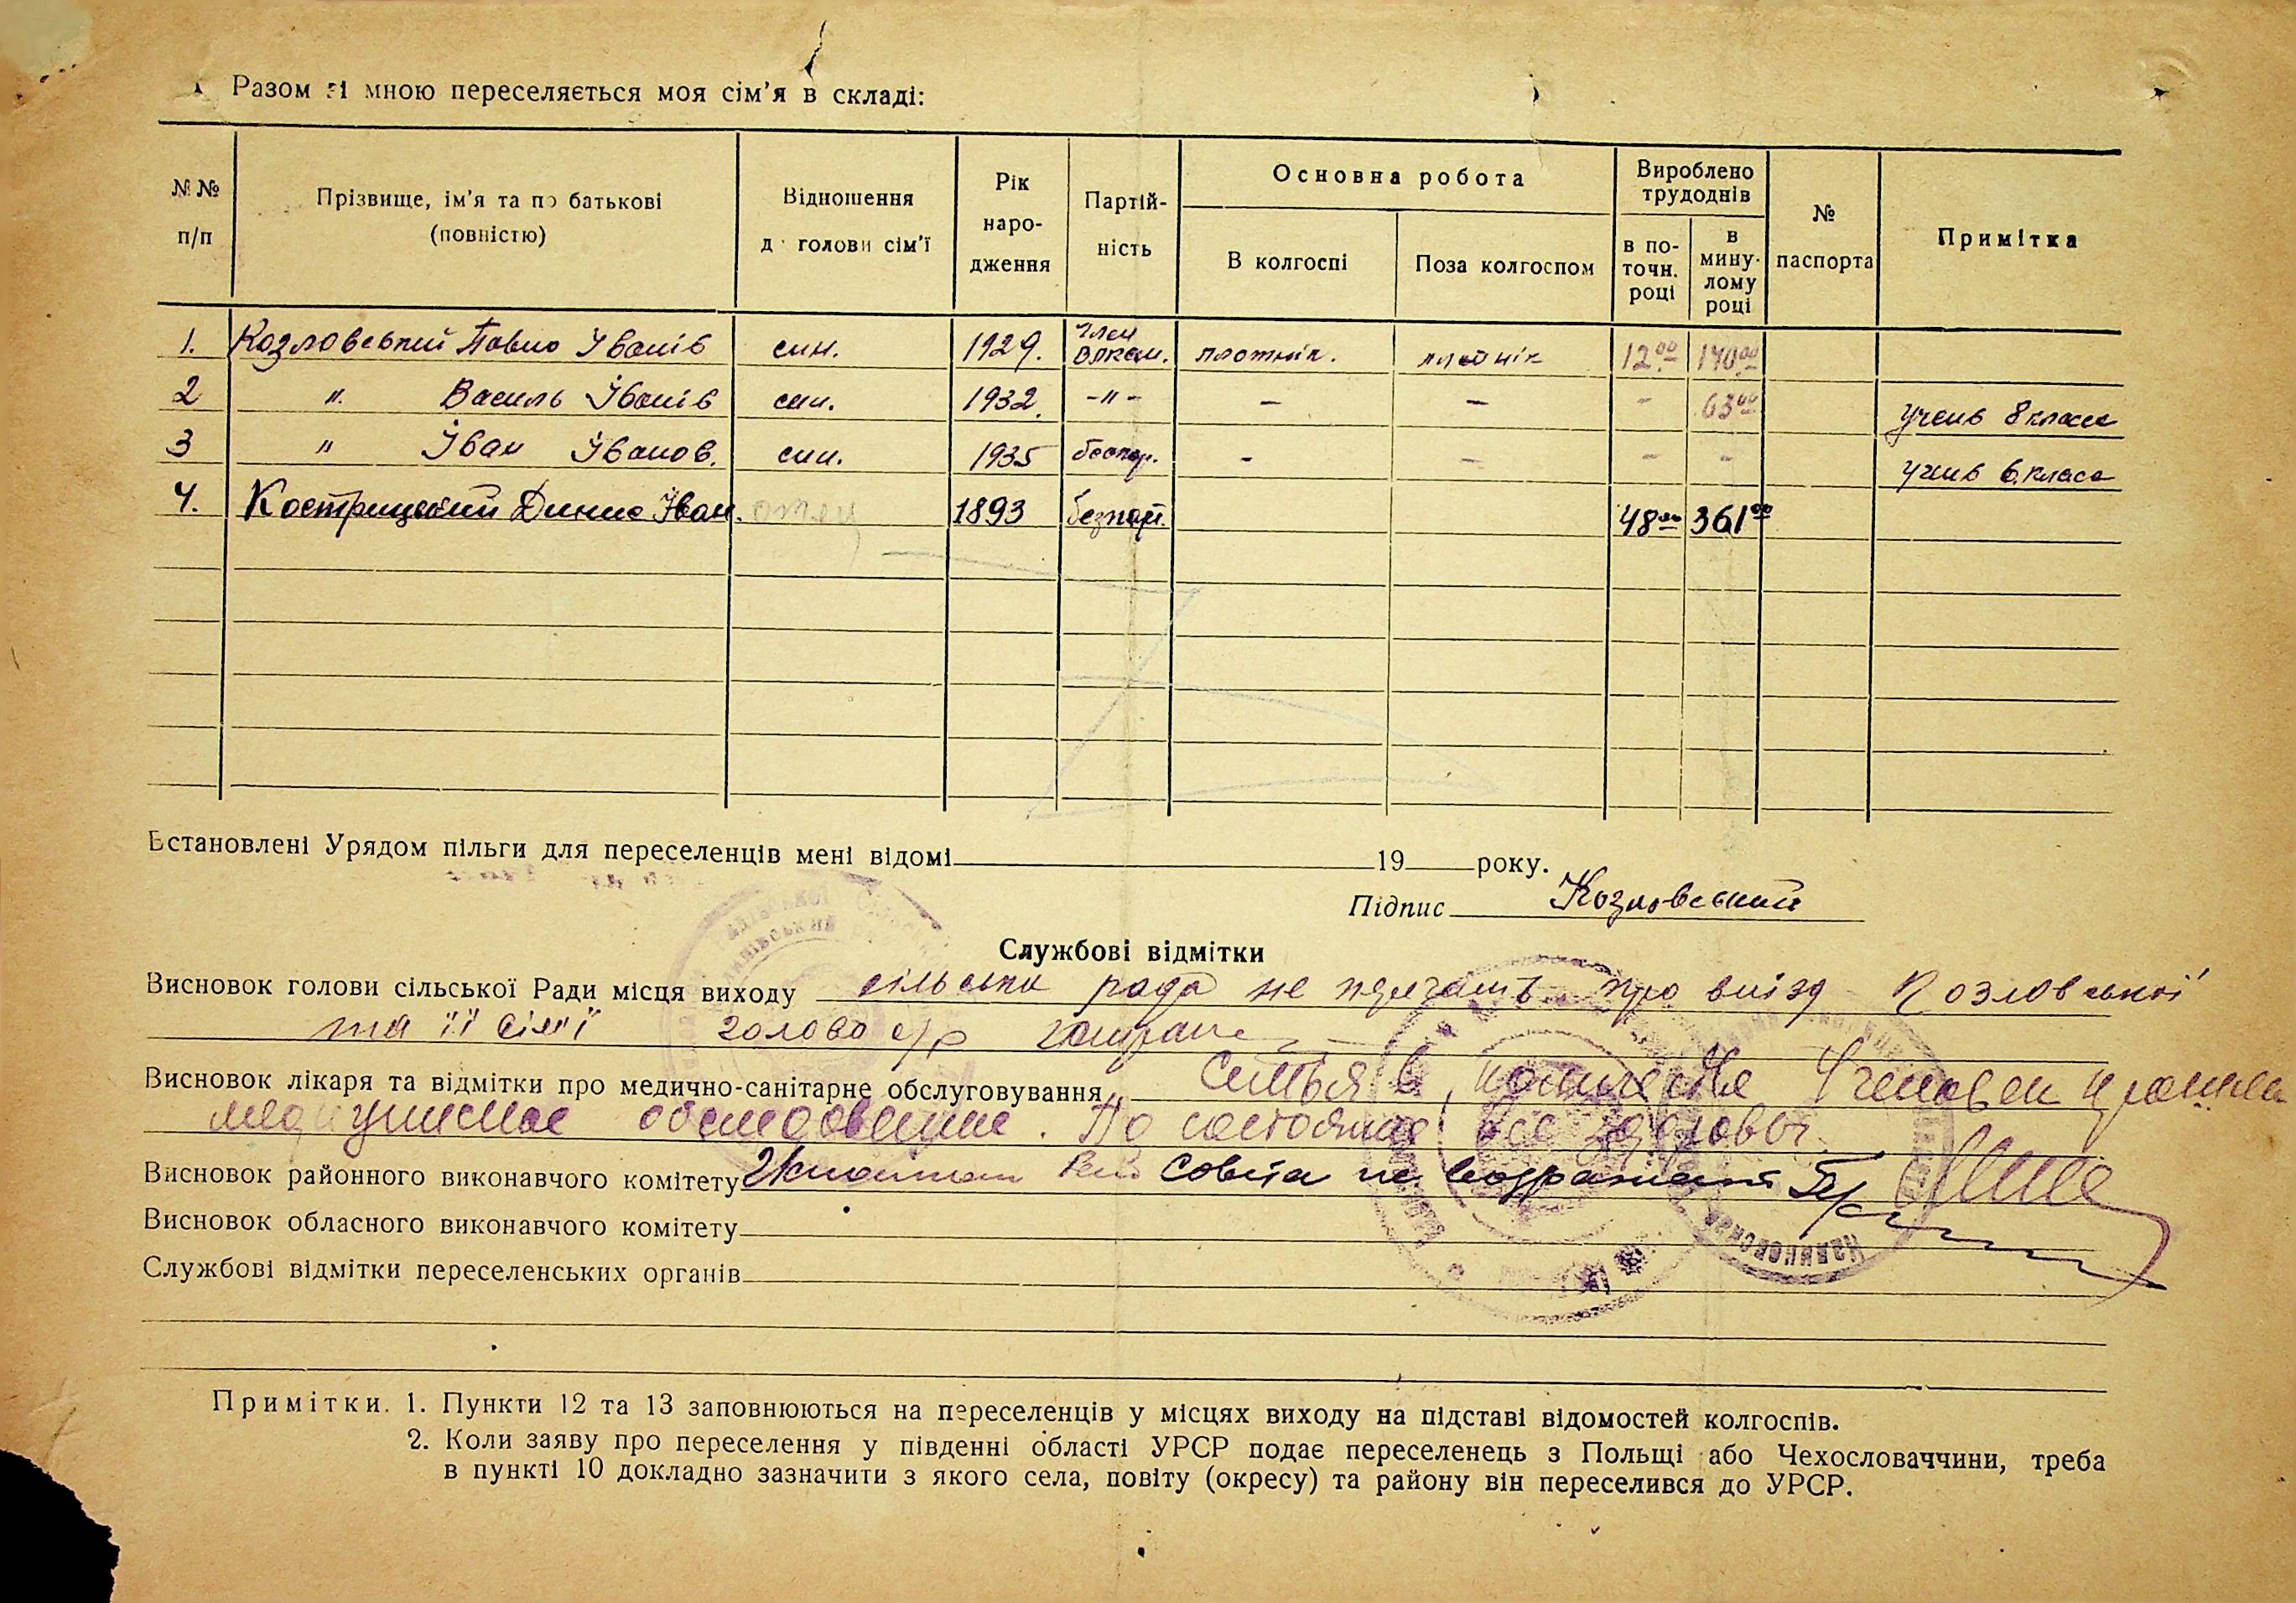 Разом зі мною переселяється моя сім'я в складі:
№№ п/п | Прізвище, ім'я та по батькові (повністю) | Відношення до голови сім'ї | Рік народження | Партій-ність | Основна робота | Вироблено трудоднів | № паспорта | Примітка
В колгоспі | Поза колгоспом | в по-точн. році | в мину-лому році
1. Козловський Павло Іванів син. 1929. член ВЛКСМ. плотнік. плотнік 12.00 140.00
2 " Василь Іванів син. 1932. -"- - - - 63.00 учень 8 класа
3 " Іван Іванов. син. 1935 беспар. - - - - учень 6 класа
4. Кострицький Динис Іван. отец 1893 безпарт. 48.00 361.00
Встановлені Урядом пільги для переселенців мені відомі 19 року.
Підпис Козловський
Службові відмітки
Висновок голови сільської Ради місця виходу сільська рада не проти про виїзд Козловської
та її сім'ї голова с/р
Висновок лікаря та відмітки про медично-санітарне обслуговування Семья в количестве 4 человек прошли
медицинское обследование. По состоянию все здоровы.
Висновок районного виконавчого комітету Исполком Рай Совета не возражает
Висновок обласного виконавчого комітету
Службові відмітки переселенських органів
Примітки. 1. Пункти 12 та 13 заповнюються на переселенців у місцях виходу на підставі відомостей колгоспів.
2. Коли заяву про переселення у південні області УРСР подає переселенець з Польщі або Чехословаччини, треба
в пункті 10 докладно зазначити з якого села, повіту (окресу) та району він переселився до УРСР.